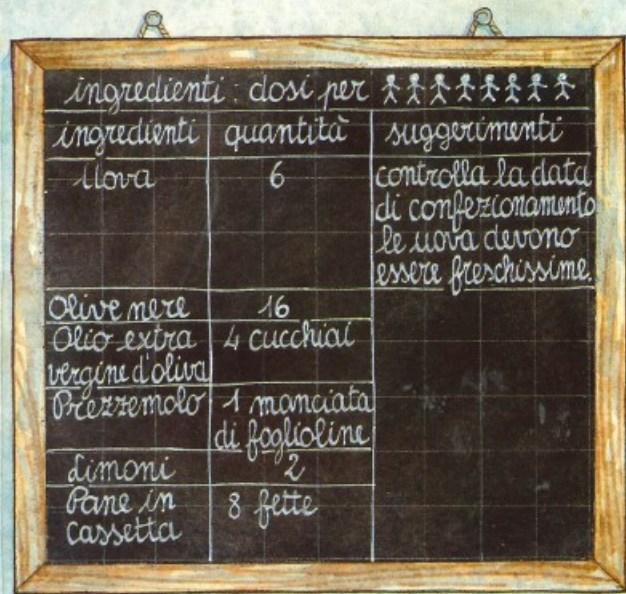 ingredienti: dosi per
ingredienti quantità suggerimenti
Uova 6 controlla la data
di confezionamento
le uova devono
essere freschissime.
Olive nere 16
Olio extra 4 cucchiai
vergine d'oliva
Prezzemolo 1 manciata
di foglioline
Limoni 2
Pane in 8 fette
cassetta